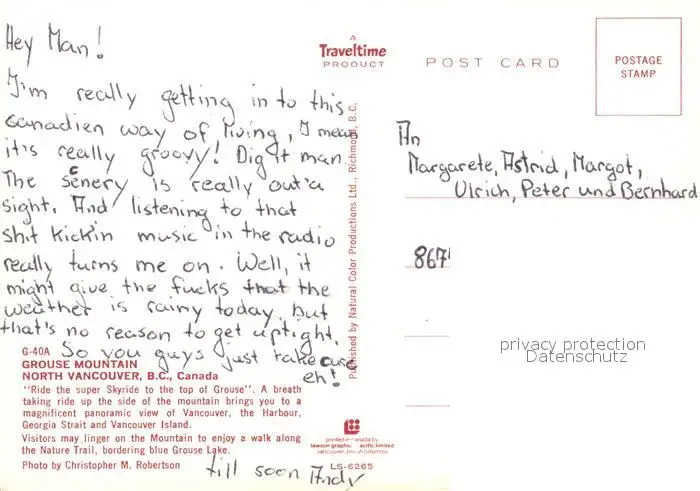 Hey Man!
I'm really getting in to this
canadien way of living, I mean
it's really groovy! Dig it man.
The scenery is really out'a
sight. And listening to that
shit kickin music in the radio
really turns me on. Well, it
might give the fucks that the
weather is rainy today, but
that's no reason to get uptight.
So you guys just take care
eh!
till soon Andy
G-40A
GROUSE MOUNTAIN
NORTH VANCOUVER, B.C., Canada
"Ride the super Skyride to the top of Grouse". A breath
taking ride up the side of the mountain brings you to a
magnificent panoramic view of Vancouver, the Harbour,
Georgia Strait and Vancouver Island.
Visitors may linger on the Mountain to enjoy a walk along
the Nature Trail, bordering blue Grouse Lake.
Photo by Christopher M. Robertson
A
Traveltime
PRODUCT
Published by Natural Color Productions Ltd., Richmond, B.C.
printed in canada by
lawson graphics pacific limited
vancouver, british columbia
LS-6265
POST CARD
POSTAGE
STAMP
An
Margarete, Astrid, Margot,
Ulrich, Peter und Bernhard
867
privacy protection
Datenschutz